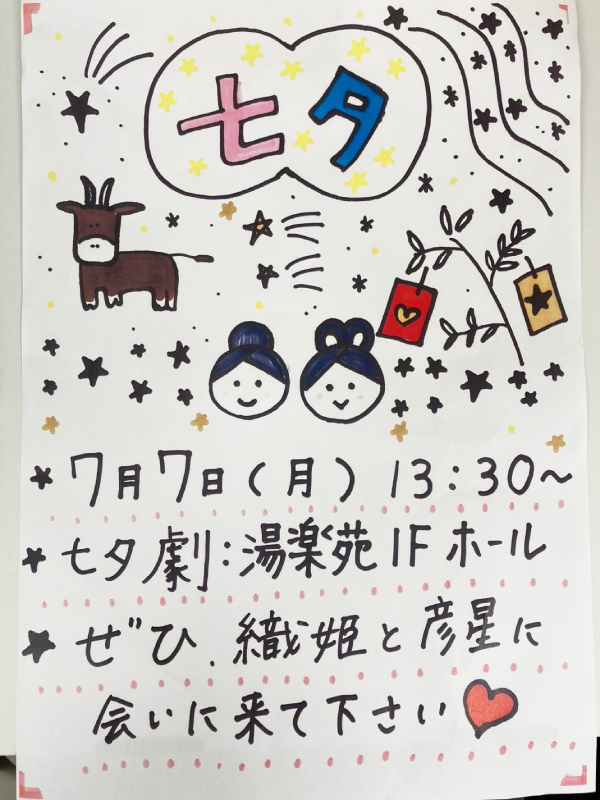 七夕
7月7日(月) 13:30~
七夕劇:湯楽苑1Fホール
ぜひ、織姫と彦星に
会いに来て下さい